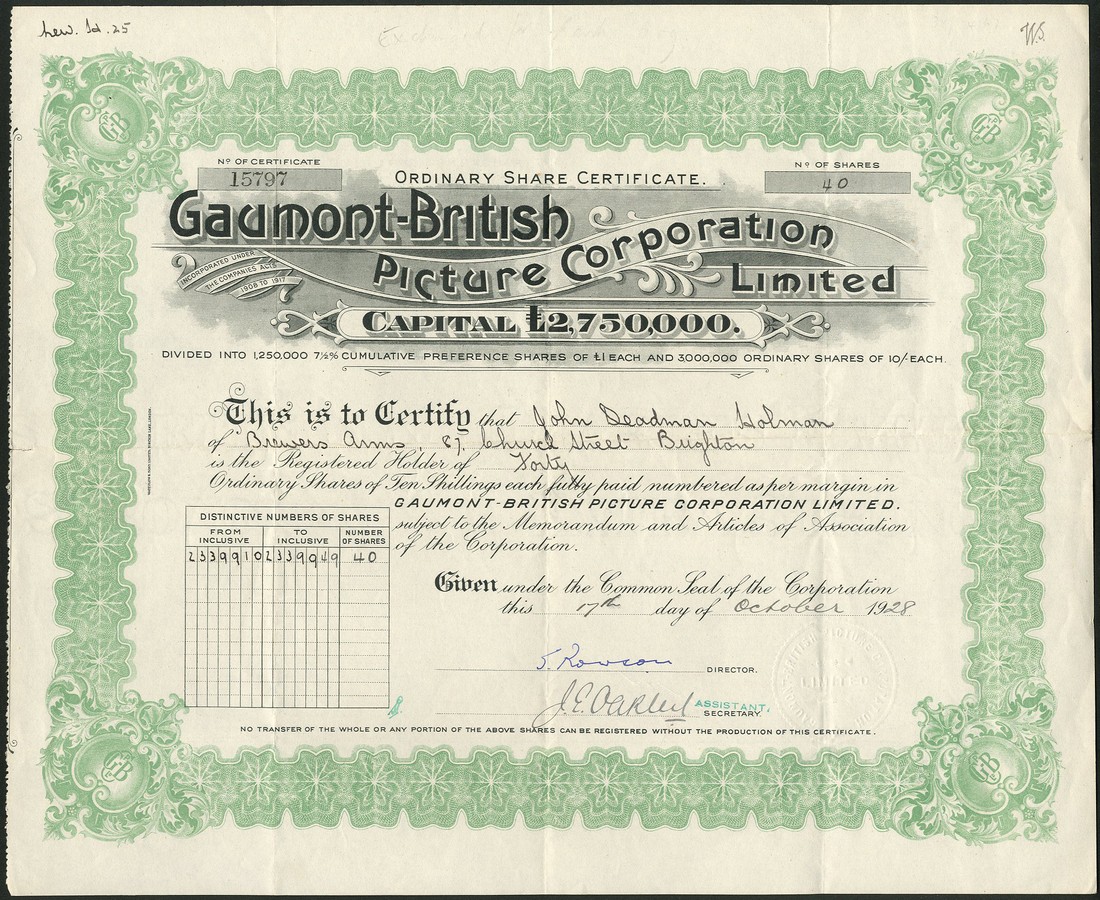 W.S.
Nº OF CERTIFICATE
15797
ORDINARY SHARE CERTIFICATE.
Nº OF SHARES
40
Gaumont-British
Picture Corporation
Limited
INCORPORATED UNDER
THE COMPANIES ACTS
1908 TO 1917
CAPITAL £2,750,000.
DIVIDED INTO 1,250,000 7½% CUMULATIVE PREFERENCE SHARES OF £1 EACH AND 3000,000 ORDINARY SHARES OF 10/- EACH.
This is to Certify that John Deadman Holman
of Brewers Arms, 87, Church Street Brighton
is the Registered Holder of Forty
Ordinary Shares of Ten Shillings each fully paid numbered as per margin in
GAUMONT-BRITISH PICTURE CORPORATION LIMITED.
subject to the Memorandum and Articles of Association
of the Corporation.
DISTINCTIVE NUMBERS OF SHARES
FROM INCLUSIVE TO INCLUSIVE NUMBER OF SHARES
2339910 2339949 40
Given under the Common Seal of the Corporation
this 17th day of October 1928
S. Rowson DIRECTOR.
J.E. Oakley ASSISTANT SECRETARY.
LIMITED
NO TRANSFER OF THE WHOLE OR ANY PORTION OF THE ABOVE SHARES CAN BE REGISTERED WITHOUT THE PRODUCTION OF THIS CERTIFICATE.